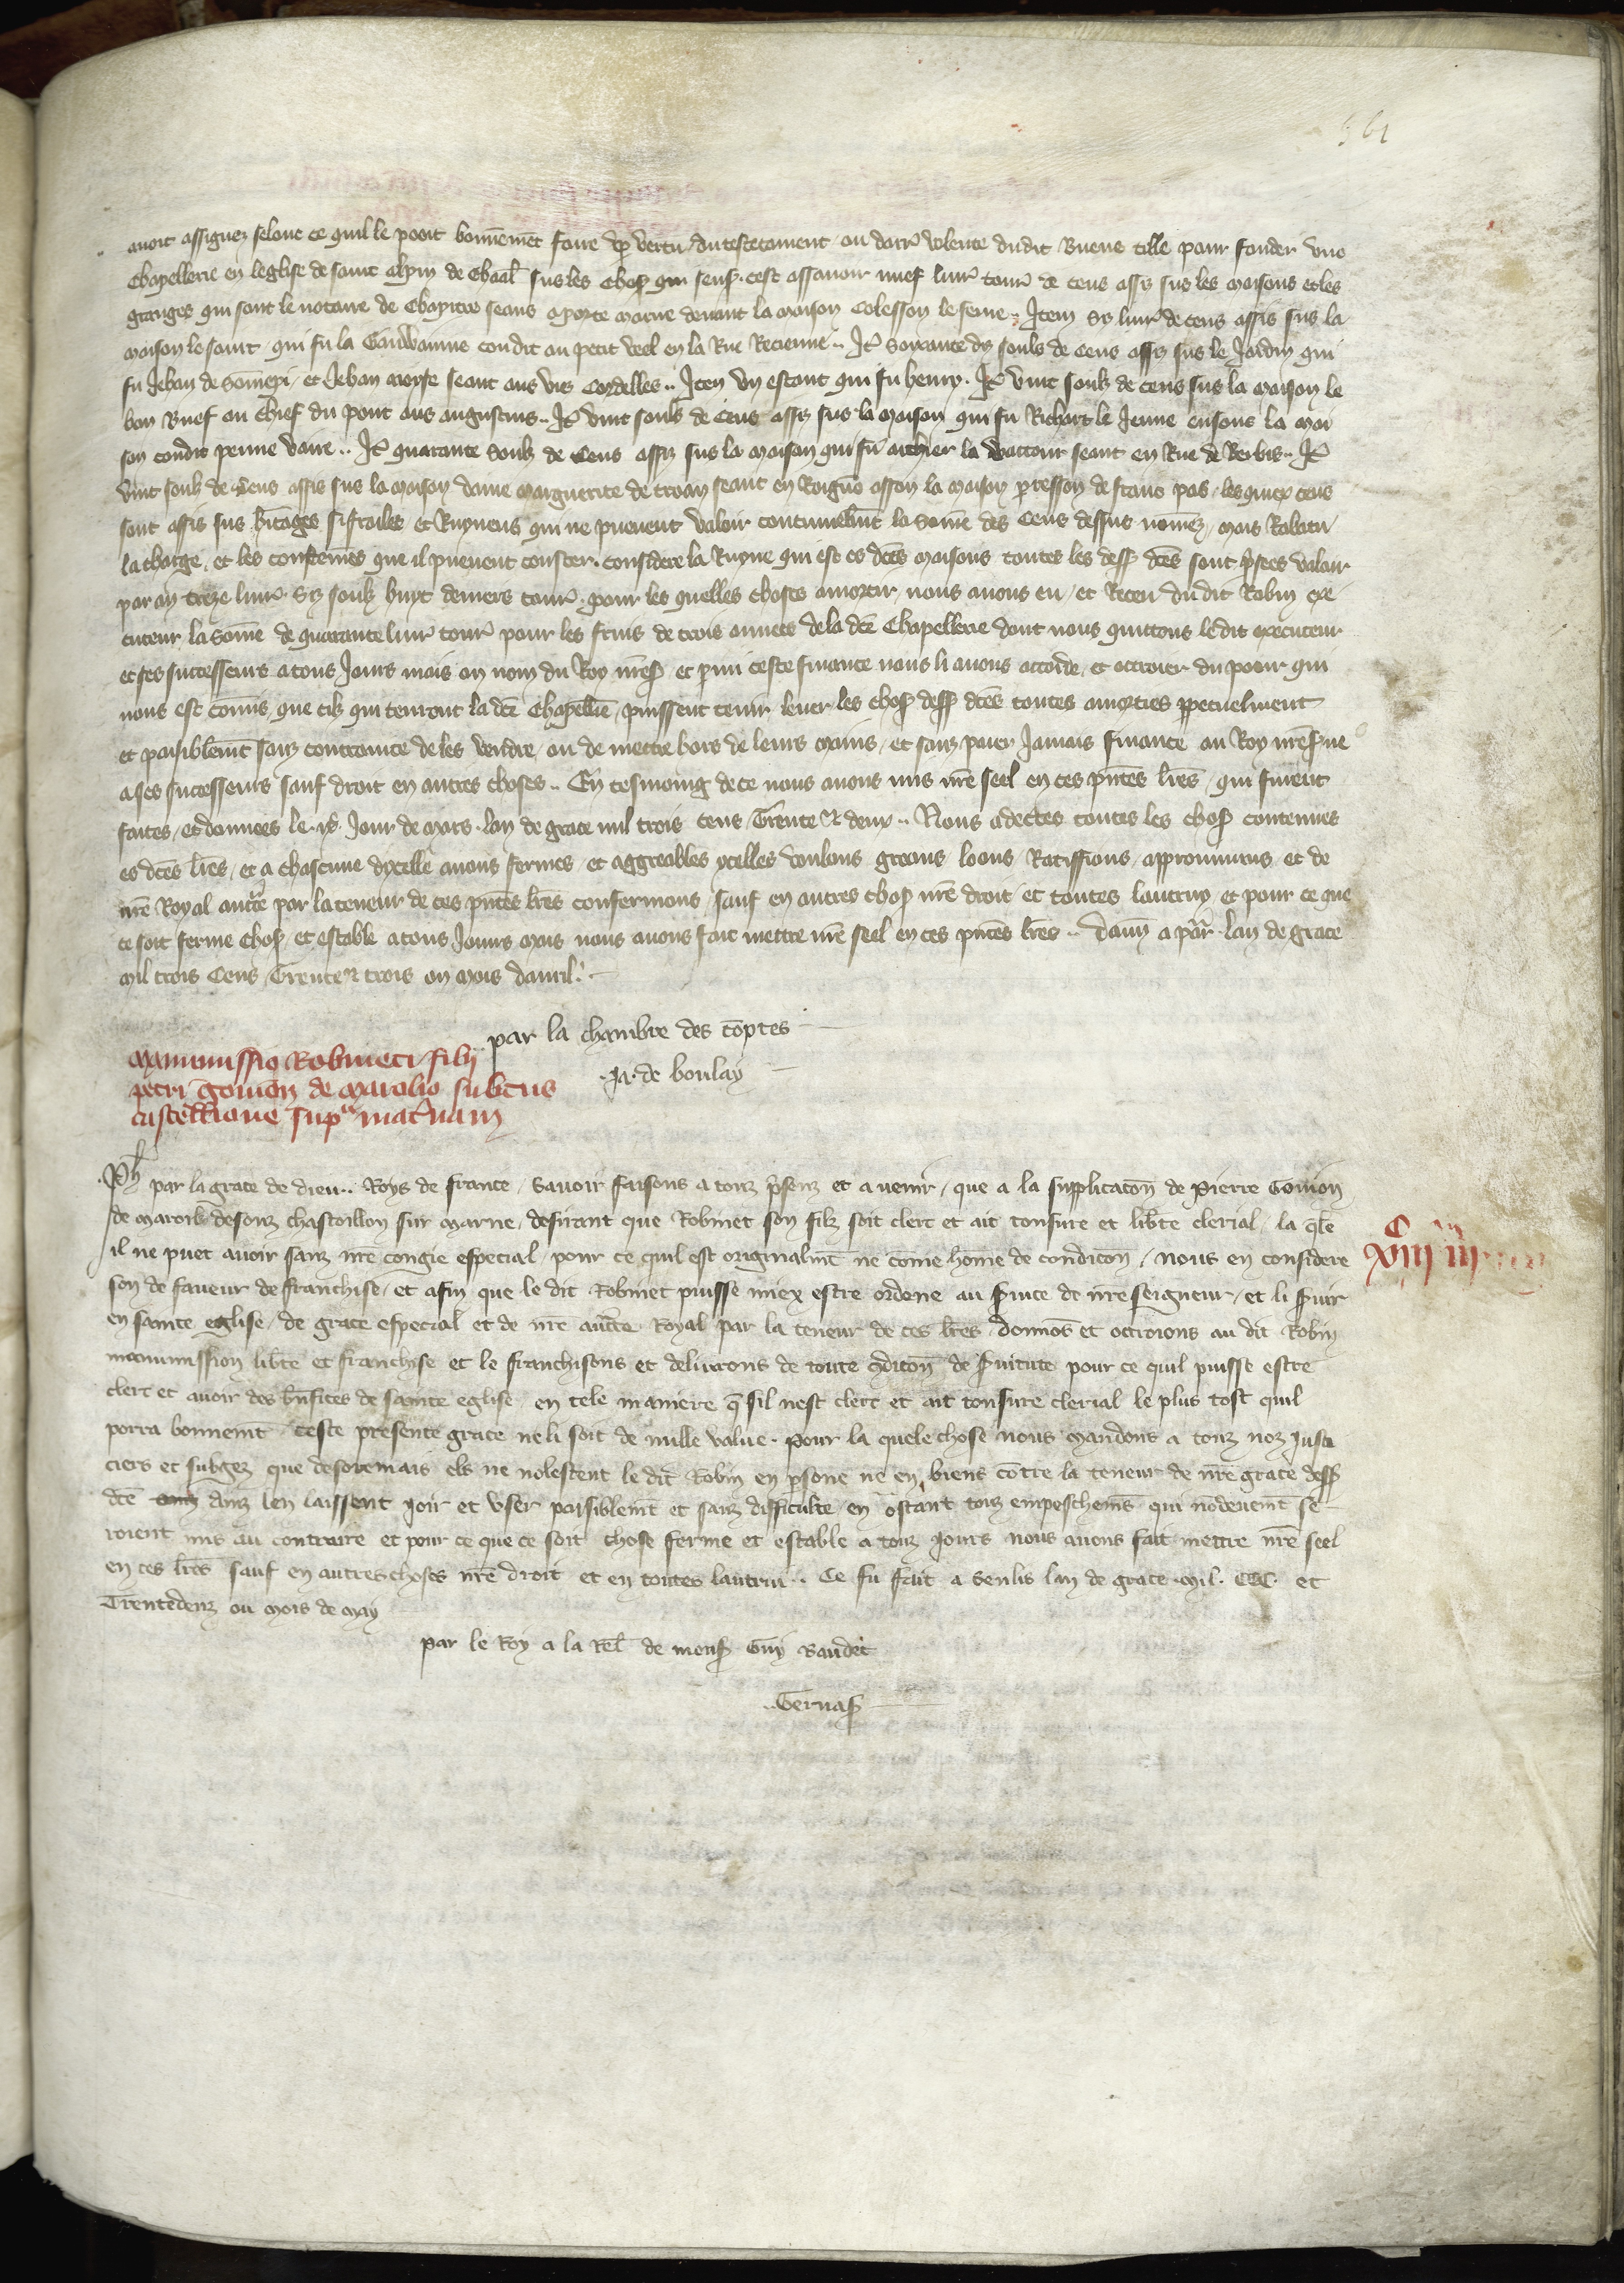 561
avoit assignez selonc ce quil le pooit bonnemẽt faire ꝑ vertu du testetament ou darr̃ volente dudit Buene tille pour fonder une
Chapellerie en leglise de saint Alpin de Chaal̃ sus les choses qui sens̃. cest assavoir nuef livr̃ tour̃ de cens assis sus les maisons et les
granges qui sont le notaire de Chapitre seans a porte marne devant la maison Colesson le seme .. Item Six livr̃ de cens assis sus la
maison le saint qui fu la Gauwainne con dit au petit veel en la Rue .. It̃ Soixante dis souls de cens assis sus le Jardin qui
fu Jehan de Sõmepi / et Jehan moyse seant aus vies Cordelles .. Item un estant qui fu henry . It̃ vint soulz de cens sus la maison le
bon Buef au chief du pont aus augustins .. It̃ vint souls de Cens assis sus la maison qui fu Richart le Jenne ensonc la mai
son condit penne vaire .. It̃ quarante Soulz de Cens assis sus la maison qui fu la seant en Rue de Berbis .. It̃
vint soulz de Cens assis sus la maison dame marguerite de troan seant en asson la maison ꝑresson de franc pas / les quiex cens
sont assis sus h̃itages si frailes et Ruyneus qui ne pueuent valoir continuelm̃t la Sõme des Cens dessus nõmez / mais Rabatu
la charge / et les cous̃temẽs que il pueuent couster . considere la Ruyne qui est es dc̃es maisons toutes les dess̃ dc̃es sont p̃sees valoir
par an treze livr̃ . Six soulz huyt deniers tour̃ . pour les quelles choses amortir nous avons eu / et Receu dudit Robin exe
cuteur la Sõme de quarante livr̃ tour̃ pour les fruis de trois annees de la dc̃e Chapellerie dont nous quittons le dit executeur
et ses successeurs a tous Jours mais ou nom du Roy nr̃es̃ / et ꝑmi ceste finance nous li avons accorde / et accroier du pooir qui
nous est cõmis que cilz qui tenront la dc̃e Chapellẽie / puissent tenir lever les chos̃ dess̃ dc̃es toutes amorties ꝑpetuelment
et paisiblem̃t sanz contrainte de les vendre / ou de mettre hors de leurs mains / et sanz paier Jamais finance au Roy nr̃es̃ ne
a ses successeurs sauf droit en autres choses .. En tesmoing de ce nous avons mis nr̃e seel en ces pñtes lr̃es / qui furent
faites / et donnees le . jour de mars . lan de grace mil trois cens Trente & deux .. Nous adectes toutes les chos̃ contenues
es dc̃es lr̃es / et a chascune dycelle avons fermes / et aggreables ycelles voulons greons loons Ratiffions approuuons et de
nr̃e Royal auct̃e par la teneur de ces pñtes lr̃es confermons / sauf en autres chos̃ nr̃e droit / et toutes lautruy et pour ce que
ce soit ferme chos̃ / et estable a tous Jours mais nous avons fait mettre nr̃e seel en ces pñtes lr̃es .. Dañ a par̃ . lan de grace
mil trois Cens Trente & trois ou mois davril . —
par la chambre des cõptes —
Ja . de boulay —
Manumissio Robineti filii
petri gomon de Marolio subtus
castellione sup̃ matr̃nam
Ph̃ par la grace de dieu .. Roys de france / Savoir faisons a touz p̃senz et avenir / que a la supplicacõn de Pierre Gomon
de Maroil desouz chastoillon sur Marne / desirant que Robinet son filz soit clerc et ait tonsure et lib̃te clerical / la q̃le
il ne puet avoir sanz nr̃e congie especial / pour ce quil est originalm̃t ne cõme home de condicõn / nous en considere
son de faveur de franchise / et afin que le dit Robinet puisse miex estre ordene au s̃vice de nr̃e seigneur / et li s̃vir
en sainte eglise / de grace especial et de nr̃e auct̃e Royal par la teneur de ces lr̃es / donnõs et octroions au dit Robin
manumission lib̃te et franchise et le franchisons et delivrons de toute cõdicõn de s̃vitute pour ce quil puisse estre
clerc et avoir des bñfices de sainte eglise / en tele maniere q̃ sil nest clerc et ait tonsure clerical le plus tost quil
porra bonnem̃t / ceste presente grace ne li soit de nulle value . Pour la quele chose nous mandons a touz noz Justi
ciers et subgez que desoremais els ne molestent le dit Robin en ꝑsone ne en biens cõtre la teneur de nr̃e grace dess̃
dc̃e ainz len laissent joir et user paisiblem̃t et sanz difficulte en ostant touz empeschem̃s qui nõdeuem̃t se
roient mis au contraire et pour ce que ce soit chose ferme et estable a touz jours nous avons fait mettre nr̃e seel
en ces lr̃es sauf en autres choses nr̃e droit et en toutes lautrui . Ce fu fait a Senlis lan de grace mil . CCC . et
Trentedeuz ou mois de may
par le Roy a la Rel̃ de mons̃ Guy Baudet
Gervas̃ —
C
XIIII IIII